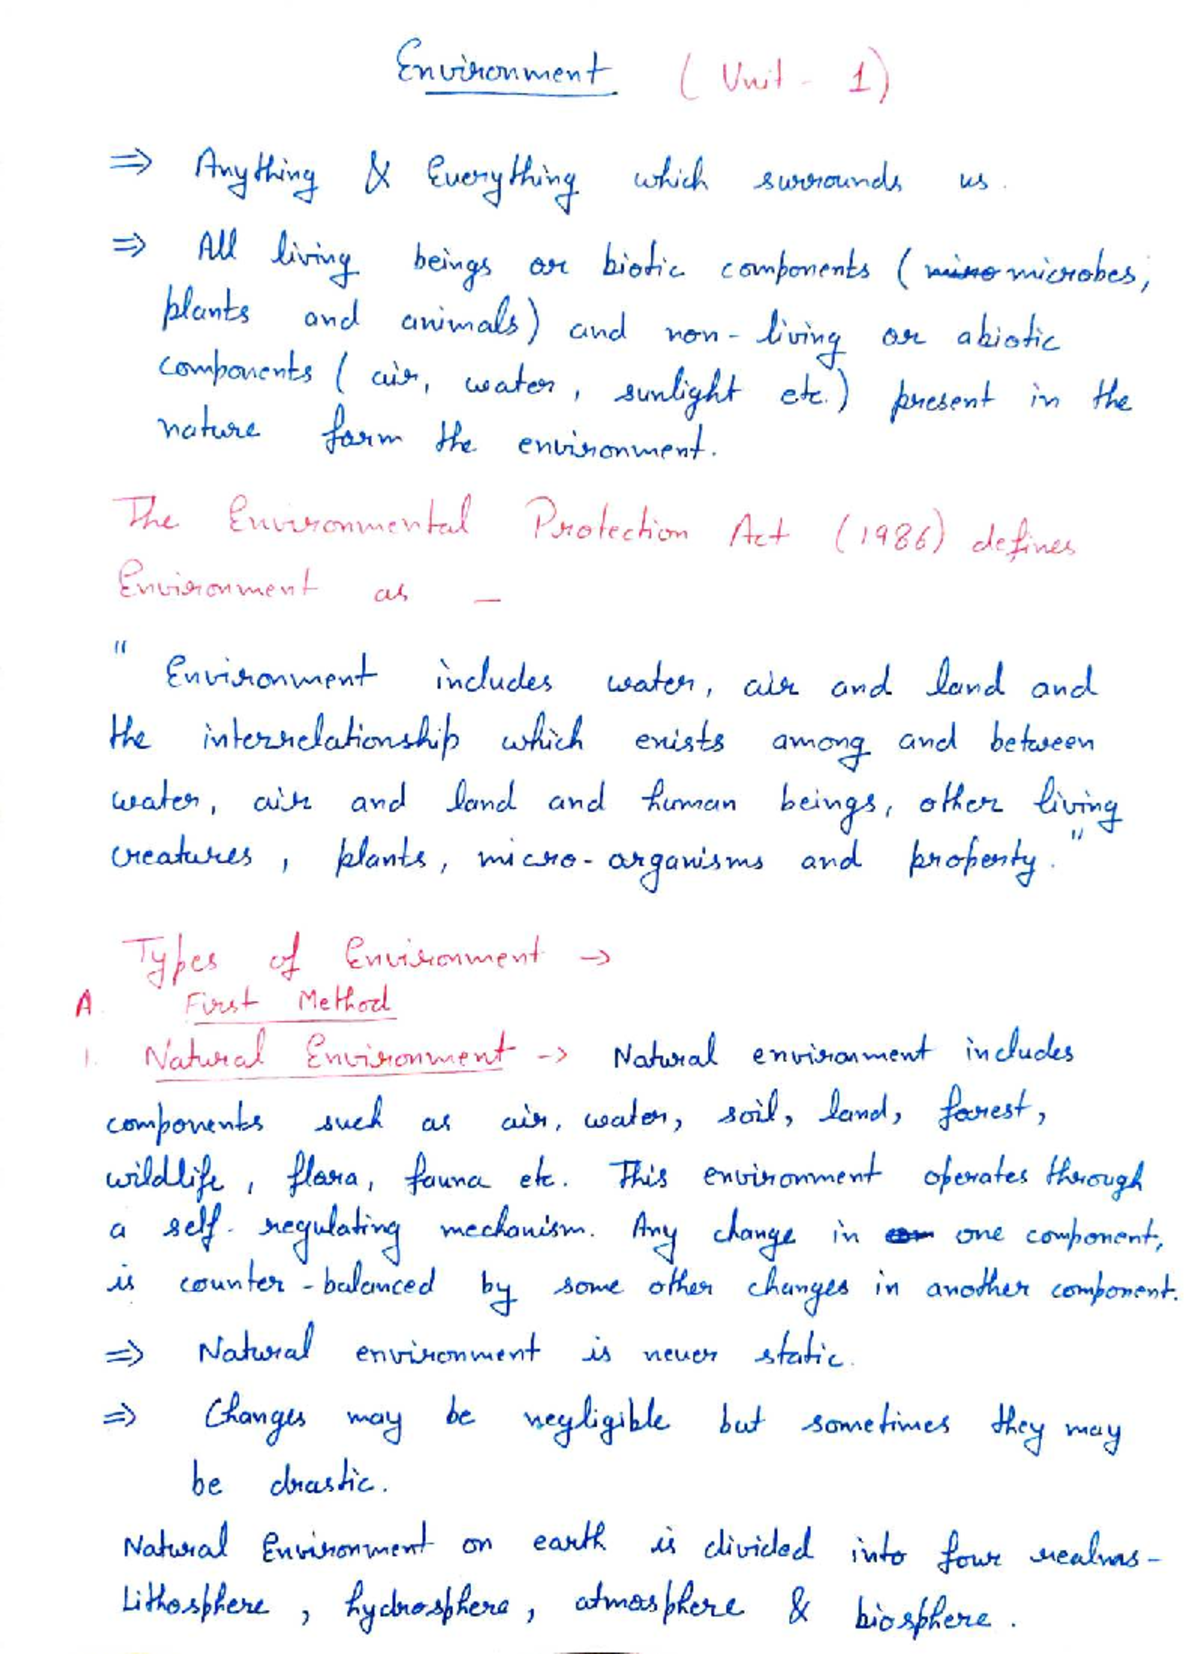 Environment (Unit - 1)
⇒ Anything & Everything which surrounds us.
⇒ All living beings or biotic components ( microbes,
plants and animals) and non-living or abiotic
components ( air, water, sunlight etc.) present in the
nature form the environment.
The Environmental Protection Act (1986) defines
Environment as –
" Environment includes water, air and land and
the interrelationship which exists among and between
water, air and land and human beings, other living
creatures, plants, micro-organisms and property."
Types of Environment →
A. First Method
1. Natural Environment -> Natural environment includes
components such as air, water, soil, land, forest,
wildlife, flora, fauna etc. This environment operates through
a self-regulating mechanism. Any change in one component,
is counter-balanced by some other changes in another component.
⇒ Natural environment is never static.
⇒ Changes may be negligible but sometimes they may
be drastic.
Natural Environment on earth is divided into four realms-
Lithosphere, hydrosphere, atmosphere & biosphere.